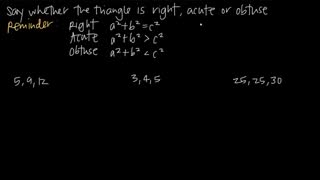 Say whether the triangle is right, acute or obtuse
Reminder Right a²+b²=c²
Acute a²+b²>c²
Obtuse a²+b²<c²
5,9,12 3,4,5 25,25,30